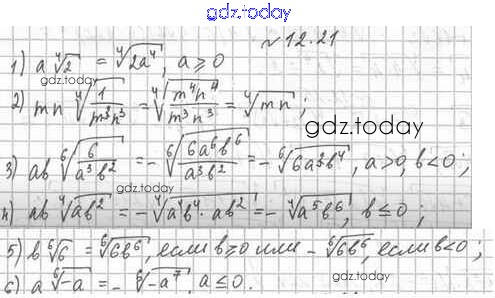 gdz.today
№ 12.21
1) a ∜2 = ∜(2a⁴), a ≥ 0
gdz.today
2) mn ∜(1/(m³n³)) = ∜(m⁴n⁴/(m³n³)) = ∜(mn);
gdz.today
3) ab ⁶√(6/(a³b²)) = -⁶√(6a⁶b⁶/(a³b²)) = -⁶√(6a³b⁴), a>0, b<0;
gdz.today
4) ab ∜(ab²) = -∜(a⁴b⁴·ab²) = -∜(a⁵b⁶), b ≤ 0;
5) b ⁶√6 = ⁶√(6b⁶), если b≥0 или -⁶√(6b⁶), если b<0;
gdz.today
6) a ⁶√(-a) = -⁶√(-a⁷), a ≤ 0.